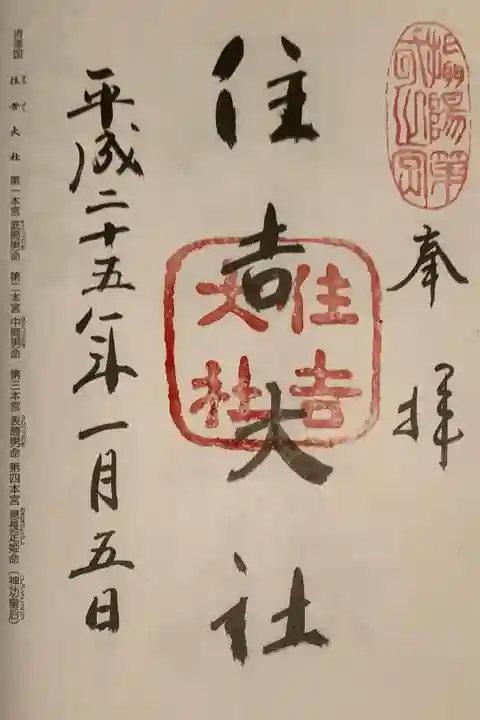 奉拝
住吉大社
住吉
大社
平成二十五年一月五日
住吉大社 第一本宮 底筒男命 第二本宮 中筒男命 第三本宮 表筒男命 第四本宮 息長足姫命(神功皇后)